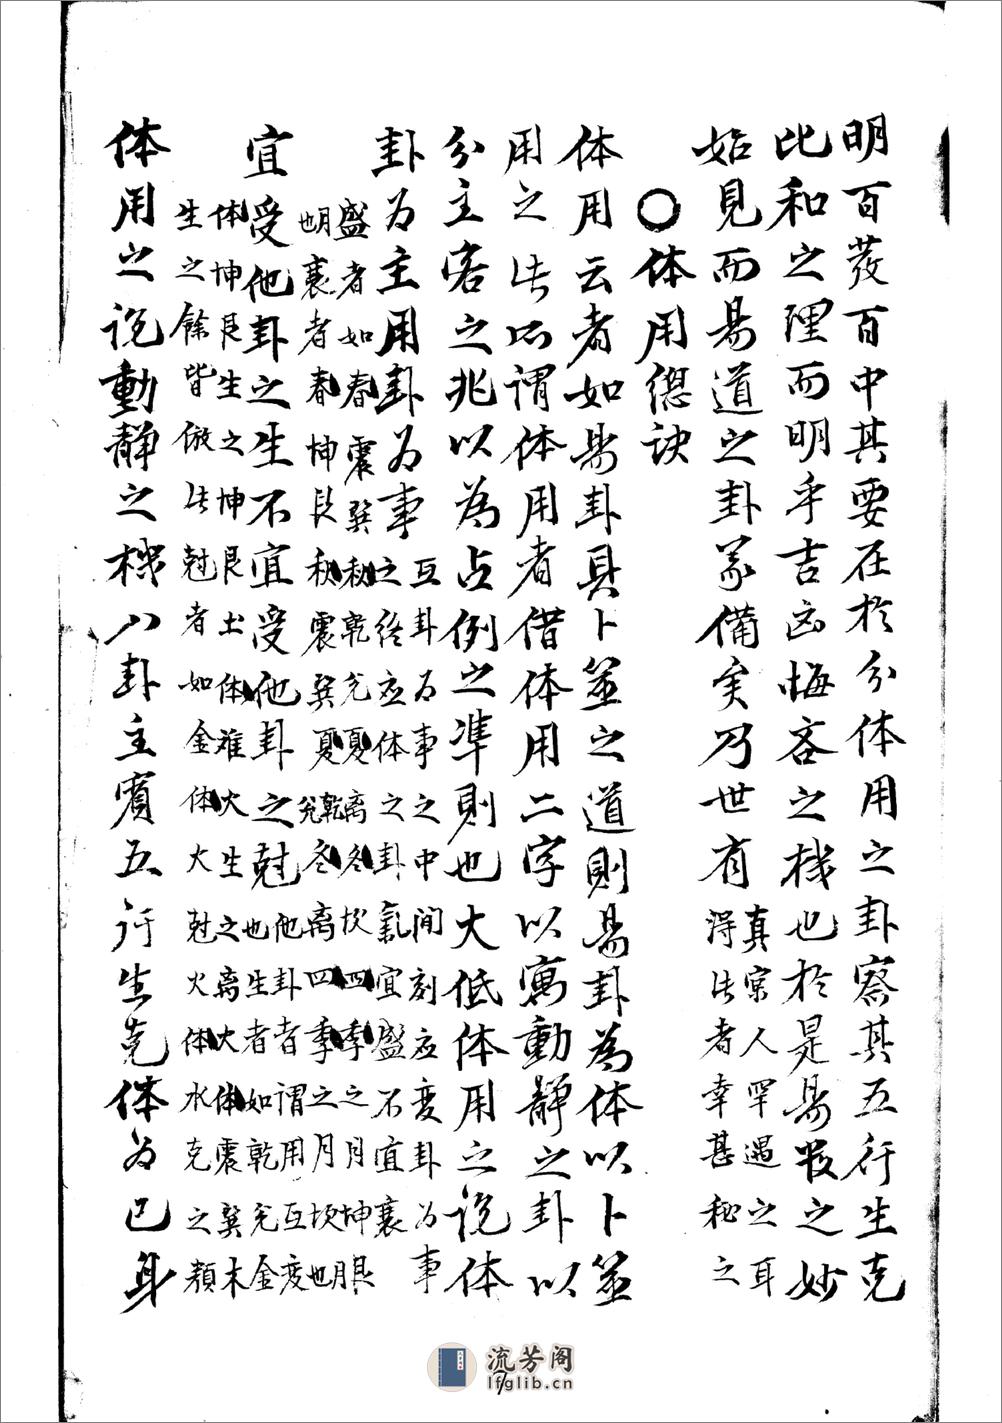 明百發百中其要在於分体用之卦察其五行生克
比和之理而明乎吉凶悔吝之机也於是易数之妙
始見而易道之卦义備矣乃世有真宗人罕遇之耳
得此者幸甚秘之
○体用總訣
体用云者如易卦具卜筮之道則易卦為体以卜筮
用之此所謂体用者借体用二字以寓動靜之卦以
分主客之兆以為占例之準則也大低体用之说体
卦为主用卦为事互卦为事之中间刻应变卦为事
之终应体之卦氣宜盛不宜衰
盛者如春震巽秋乾兑夏离冬坎四季之月坤艮
也月衰者春坤艮秋震巽夏乾兑冬离四季之月坎也
宜受他卦之生不宜受他卦之尅他卦者谓用互变
也生者如乾兑金
体坤艮生之坤艮土体难火生之离火体震巽木
生之餘皆倣此尅者如金体火尅火体水克之類
体用之说動靜之机八卦主賓五行生克体为己身
流芳阁
lfglib.cn